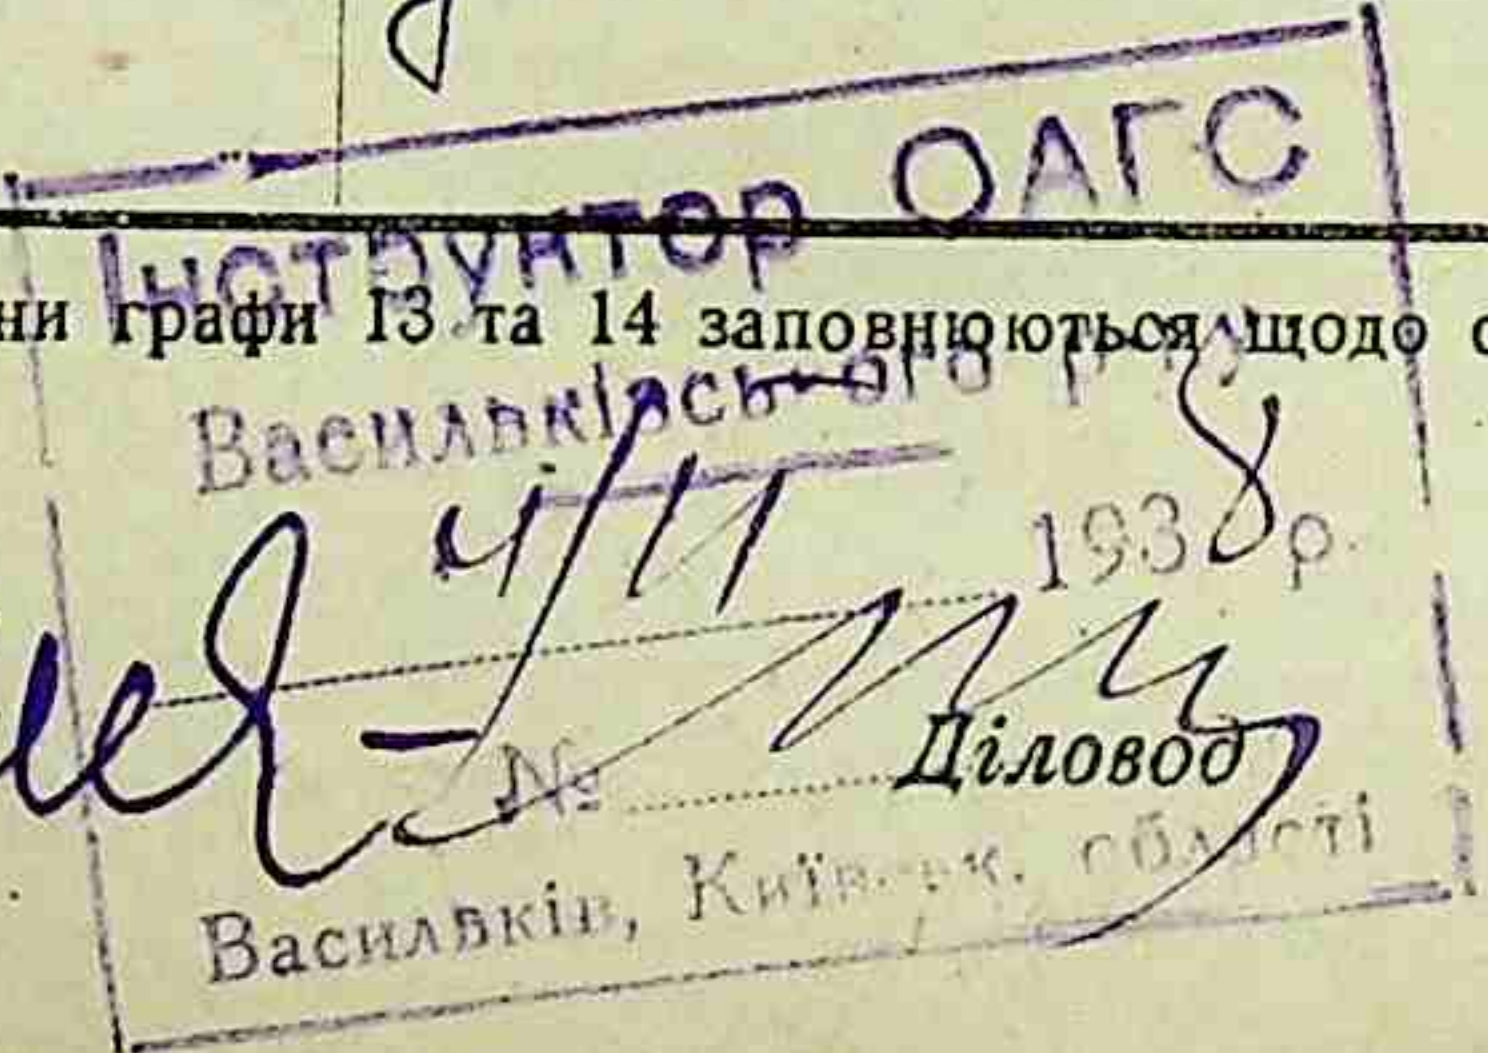 Інструктор ОАГС
ни графи 13 та 14 заповнюються щодо
Василвківського
4/II 1938 р.
№
Діловод
Василвків, Київськ. області